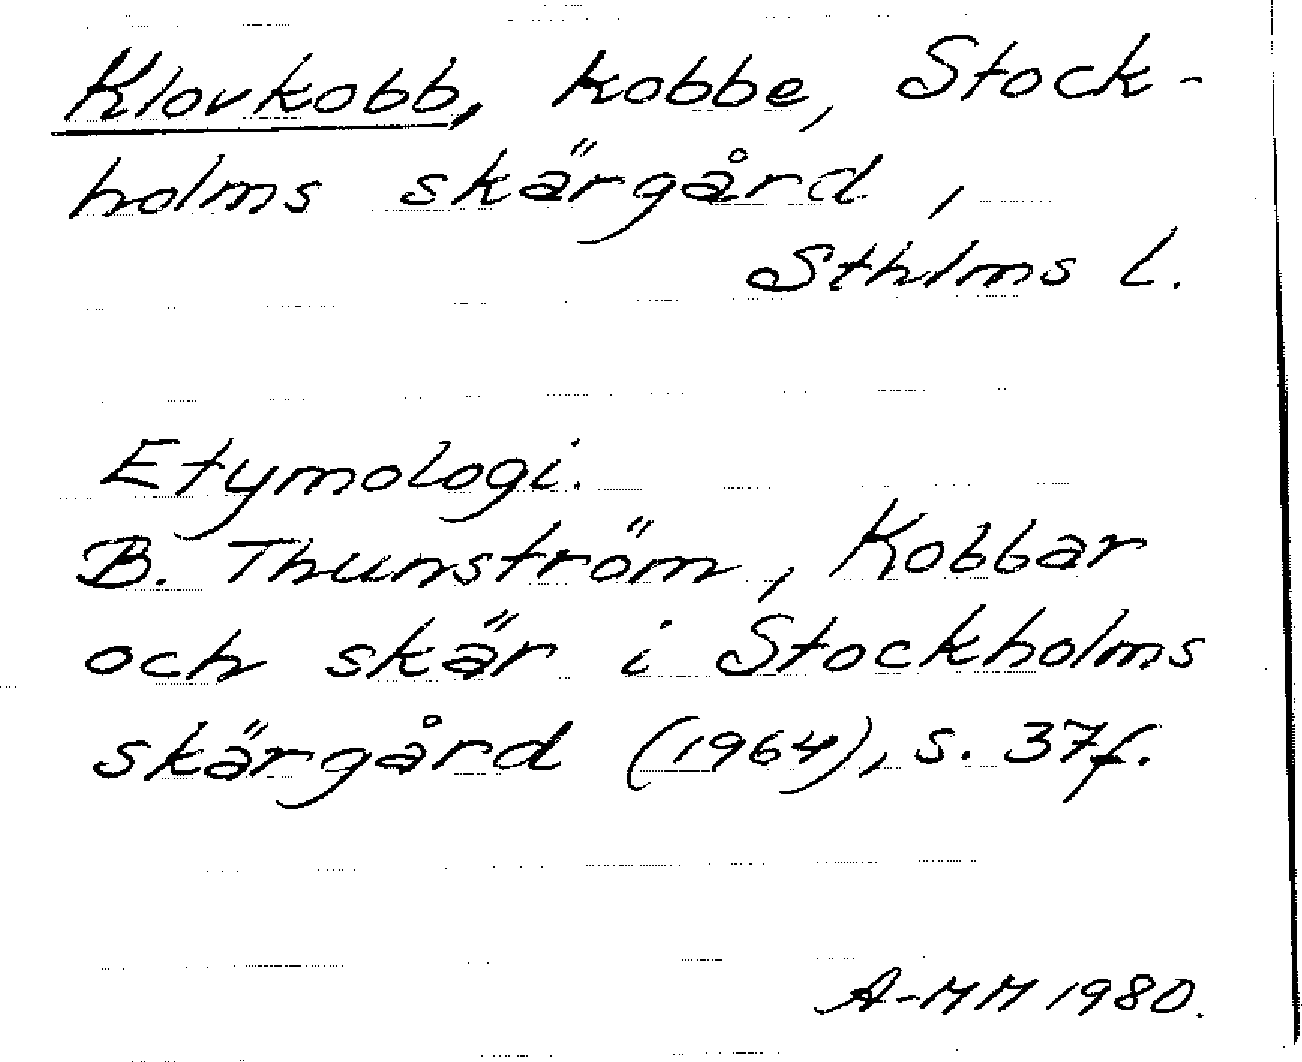 Klovkobb, kobbe, Stock-
holms skärgård,
Sthlms l.
Etymologi.
B. Thunström, Kobbar
och skär i Stockholms
skärgård (1964), s. 37f.
A-MM 1980.